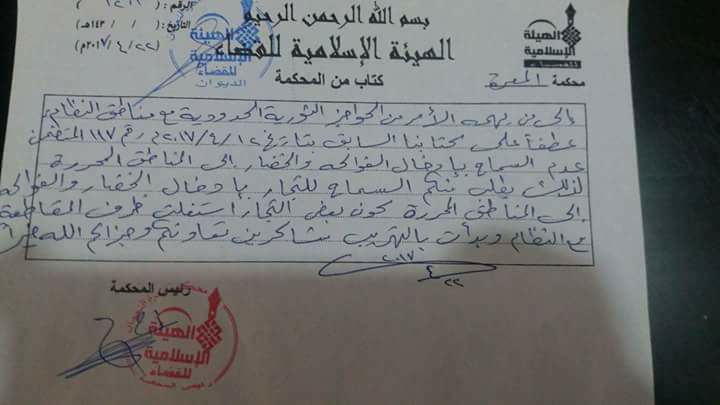 بسم الله الرحمن الرحيم
الهيئة الإسلامية للقضاء
كتاب من المحكمة
الرقم: (
التاريخ: / / ١٤٣هـ
(٢٢ / ٤ / ٢٠١٧م)
الهيئة
الإسلامية
للقضاء
الديوان
الهيئة
الإسلامية
للقضاء
محكمة المعرة
إلى من يهمه الأمر من الحواجز الثورية الحدودية مع مناطق النظام
عطفاً على كتابنا السابق بتاريخ ١٢/٤/٢٠١٧م رقم ١١٧ المتضمن
عدم السماح بإدخال الفواكه والخضار إلى المناطق المحررة
لذلك يطلب منكم السماح للتجار بإدخال الخضار والفواكه
إلى المناطق المحررة كون بعض التجار استغلت ظرف المقاطعة
مع النظام وبدأت بالتهريب شاكرين تعاونكم وجزاكم الله خيراً
٢٢/٤/٢٠١٧
رئيس المحكمة
الهيئة
الإسلامية
للقضاء
رئيس المحكمة